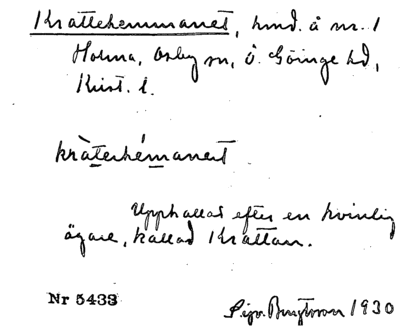 Krattehemmanet, hmd. å nr. 1
Holma, Osby sn, Ö. Göinge hd,
Krist. l.
kràterhémanet
Upphallad efter en kvinlig
ägare, kallad Krattan.
Nr 5433
Sigv. Bengtsson 1930